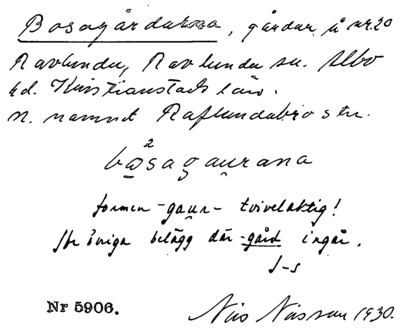 Bosagårdarna, gårdar å nr 20
Ravlunda, Ravlunda sn. Albo
hd. Kristianstads län.
n. namnet Raflundabro stn.
2
bo̲sagau̯rana
formen -gau̯r- tvivelaktig!
Jfr övriga belägg där -gård ingår.
J-s
Nr 5906. Nils Nilsson 1930.